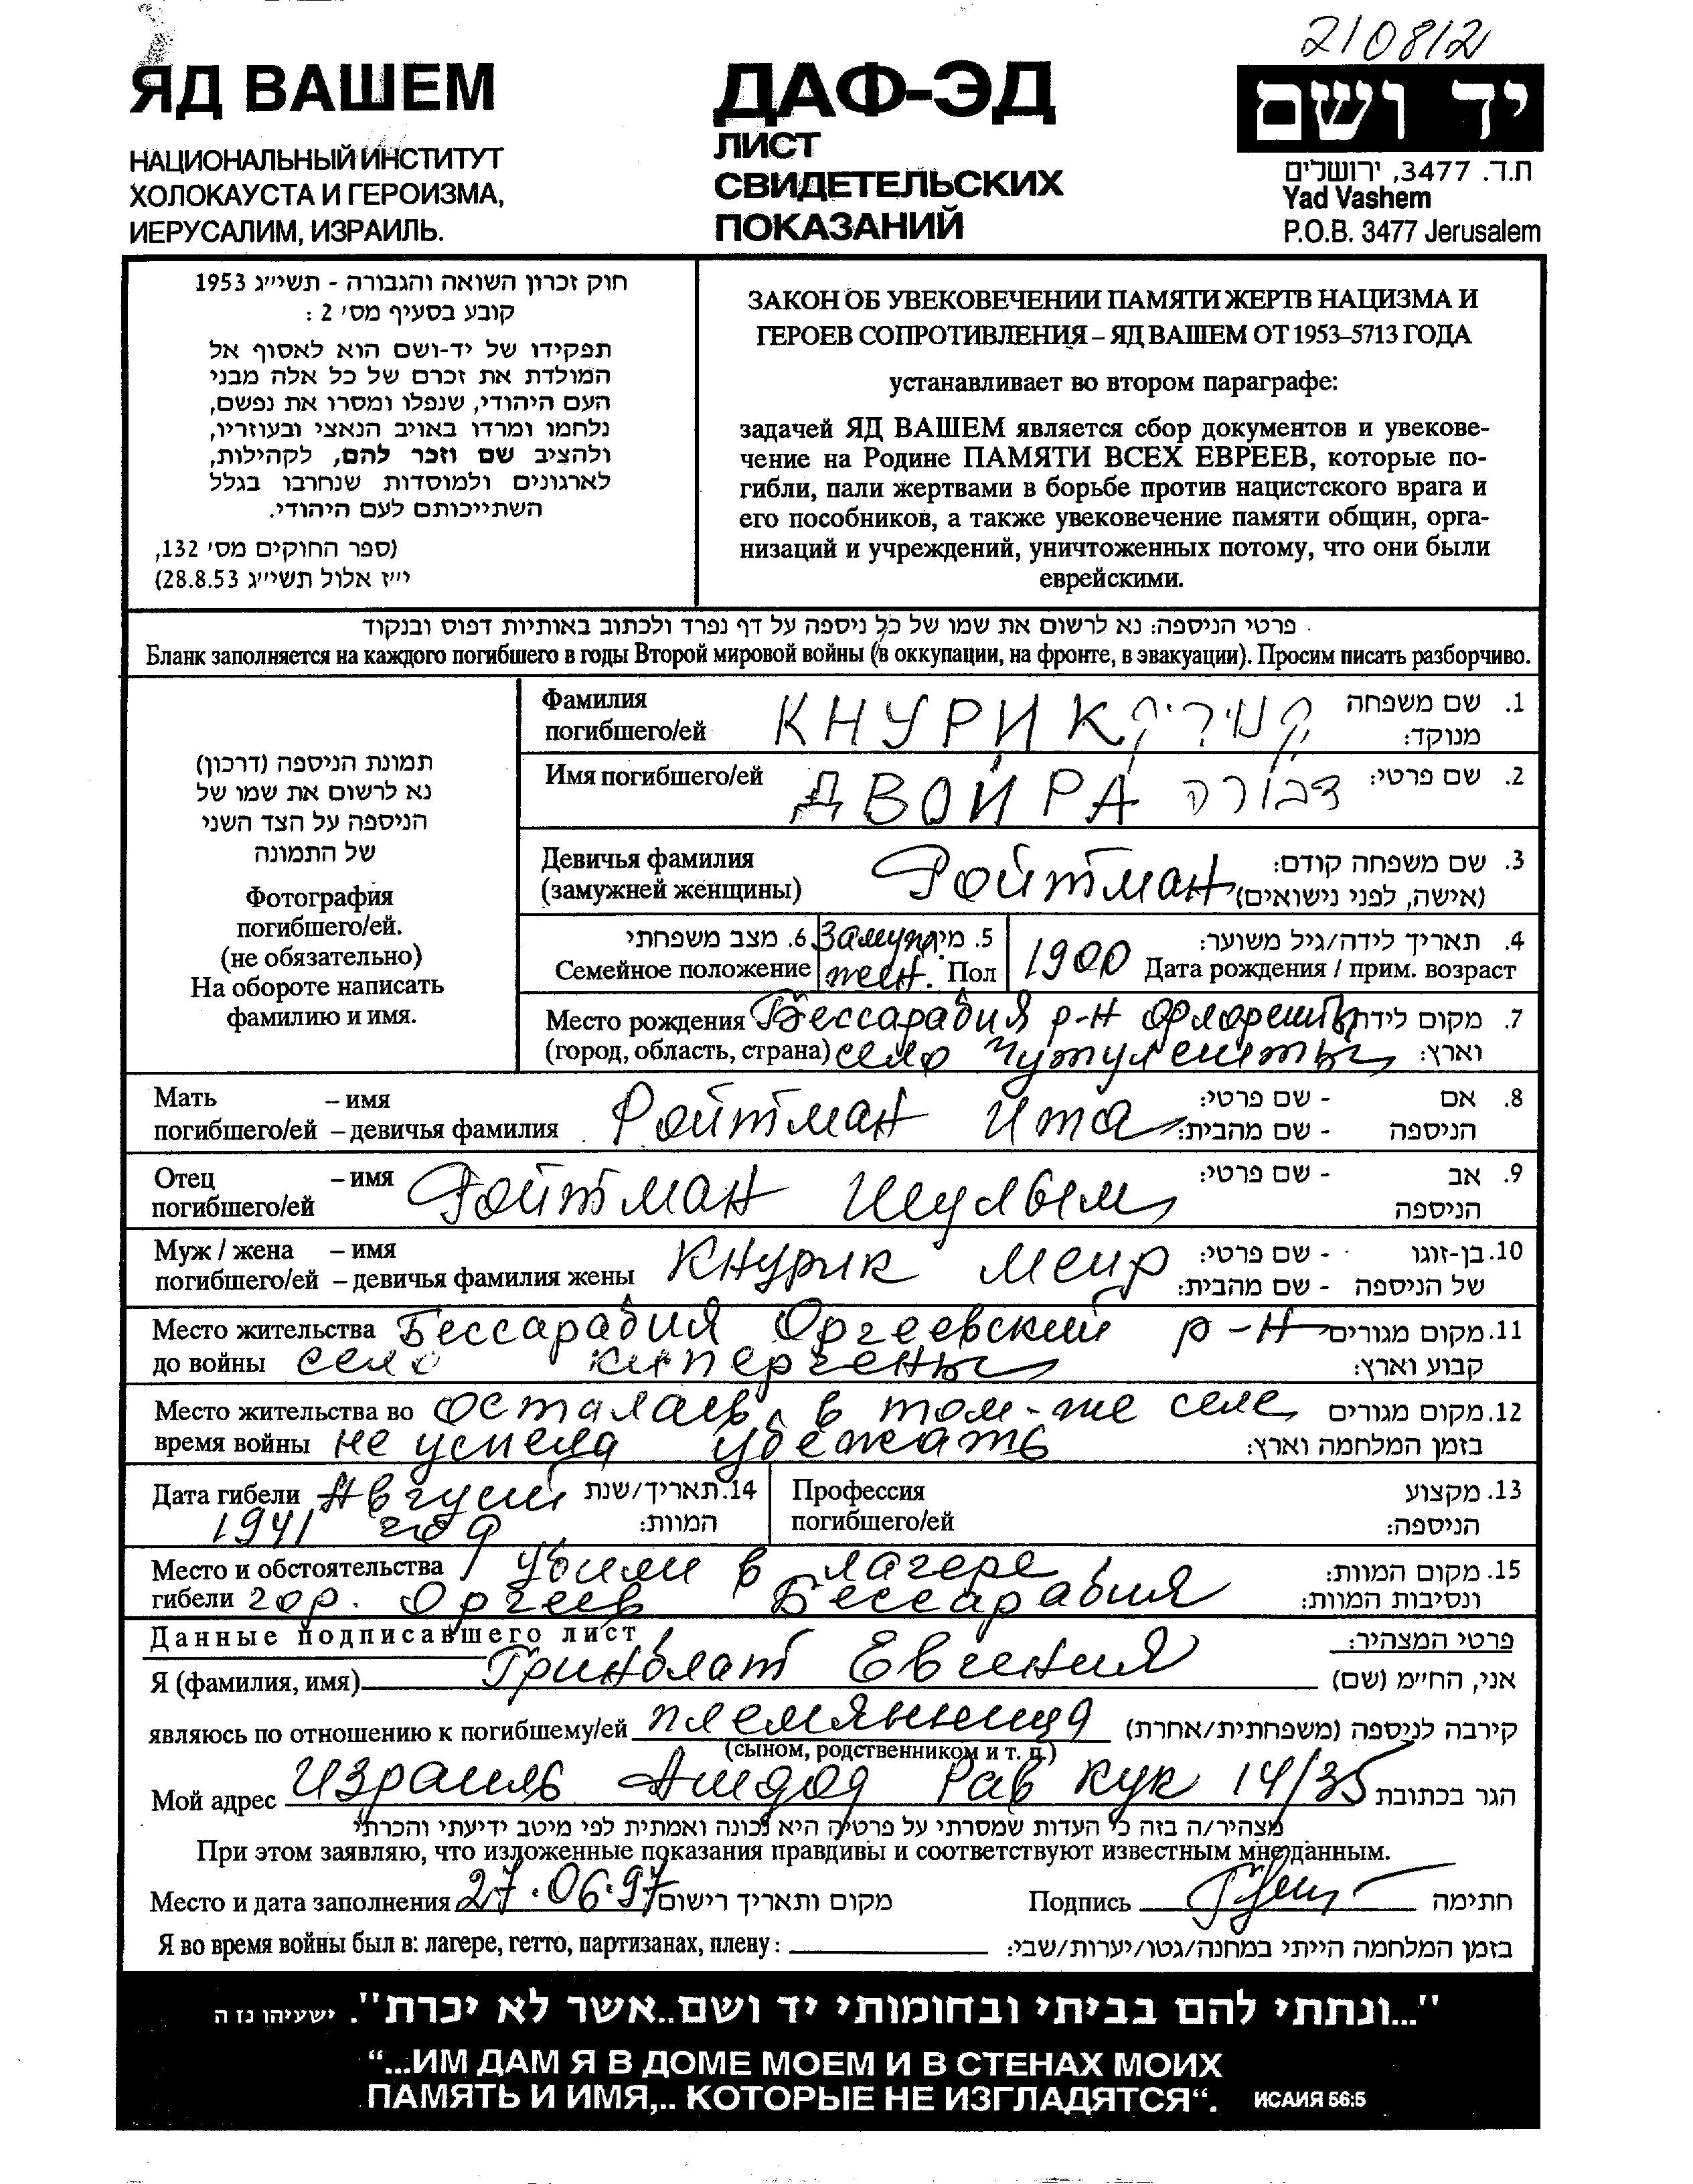 210812
ЯД ВАШЕМ
НАЦИОНАЛЬНЫЙ ИНСТИТУТ
ХОЛОКАУСТА И ГЕРОИЗМА,
ИЕРУСАЛИМ, ИЗРАИЛЬ.
ДАФ-ЭД
ЛИСТ
СВИДЕТЕЛЬСКИХ
ПОКАЗАНИЙ
יד ושם
ת.ד. 3477, ירושלים
Yad Vashem
P.O.B. 3477 Jerusalem
חוק זכרון השואה והגבורה - תשי״ג 1953
קובע בסעיף מס׳ 2 :
תפקידו של יד-ושם הוא לאסוף אל
המולדת את זכרם של כל אלה מבני
העם היהודי, שנפלו ומסרו את נפשם,
נלחמו ומרדו באויב הנאצי ובעוזריו,
ולהציב שם וזכר להם, לקהילות,
לארגונים ולמוסדות שנחרבו בגלל
השתייכותם לעם היהודי.
(ספר החוקים מס׳ 132,
י״ז אלול תשי״ג 28.8.53)
ЗАКОН ОБ УВЕКОВЕЧЕНИИ ПАМЯТИ ЖЕРТВ НАЦИЗМА И
ГЕРОЕВ СОПРОТИВЛЕНИЯ – ЯД ВАШЕМ ОТ 1953–5713 ГОДА
устанавливает во втором параграфе:
задачей ЯД ВАШЕМ является сбор документов и увекове-
чение на Родине ПАМЯТИ ВСЕХ ЕВРЕЕВ, которые по-
гибли, пали жертвами в борьбе против нацистского врага и
его пособников, а также увековечение памяти общин, орга-
низаций и учреждений, уничтоженных потому, что они были
еврейскими.
פרטי הניספה: נא לרשום את שמו של כל ניספה על דף נפרד ולכתוב באותיות דפוס ובנקוד
Бланк заполняется на каждого погибшего в годы Второй мировой войны (в оккупации, на фронте, в эвакуации). Просим писать разборчиво.
תמונת הניספה (דרכון)
נא לרשום את שמו של
הניספה על הצד השני
של התמונה
Фотография
погибшего/ей.
(не обязательно)
На обороте написать
фамилию и имя.
Фамилия КНУРИК קנוריק 1. שם משפחה
погибшего/ей מנוקד:
Имя погибшего/ей ДВОЙРА דבורה 2. שם פרטי:
Девичья фамилия Ройтман 3. שם משפחה קודם:
(замужней женщины) (אישה, לפני נישואים)
6. מצב משפחתי замуж. 5. מין 1900 4. תאריך לידה/גיל משוער:
Семейное положение жен. Пол Дата рождения / прим. возраст
Место рождения Бессарабия р-н Флорешты 7. מקום לידה
(город, область, страна) село Чутулешты וארץ:
Мать – имя Ройтман Ита 8. אם - שם פרטי:
погибшего/ей – девичья фамилия הניספה - שם מהבית:
Отец – имя Ройтман Шулым 9. אב - שם פרטי:
погибшего/ей הניספה
Муж / жена – имя Кнурик Меир 10. בן-זוגו - שם פרטי:
погибшего/ей – девичья фамилия жены של הניספה - שם מהבית:
Место жительства Бессарабия Оргеевский р-н 11. מקום מגורים
до войны село Киперчены קבוע וארץ:
Место жительства во осталась в том-же селе 12. מקום מגורים
время войны не успела убежать בזמן המלחמה וארץ:
Дата гибели Август 14. תאריך/שנת
1941 год המוות:
Профессия 13. מקצוע
погибшего/ей הניספה:
Место и обстоятельства убили в лагере 15. מקום המוות:
гибели гор. Оргеев Бессарабия ונסיבות המוות:
Данные подписавшего лист פרטי המצהיר:
Я (фамилия, имя) Гринблат Евгения אני, הח״מ (שם)
являюсь по отношению к погибшему/ей племянница קירבה לניספה (משפחתית/אחרת)
(сыном, родственником и т. п.)
Мой адрес Израиль Ашдод Рав Кук 14/35 הגר בכתובת
מצהיר/ה בזה כי העדות שמסרתי על פרטיה היא נכונה ואמתית לפי מיטב ידיעתי והכרתי
При этом заявляю, что изложенные показания правдивы и соответствуют известным мне данным.
Место и дата заполнения 27.06.97 מקום ותאריך רישום Подпись חתימה
Я во время войны был в: лагере, гетто, партизанах, плену: בזמן המלחמה הייתי במחנה/גטו/יערות/שבי:
"...ונתתי להם בביתי ובחומותי יד ושם..אשר לא יכרת". ישעיהו נז ה
“...ИМ ДАМ Я В ДОМЕ МОЕМ И В СТЕНАХ МОИХ
ПАМЯТЬ И ИМЯ,.. КОТОРЫЕ НЕ ИЗГЛАДЯТСЯ“. ИСАИЯ 56:5